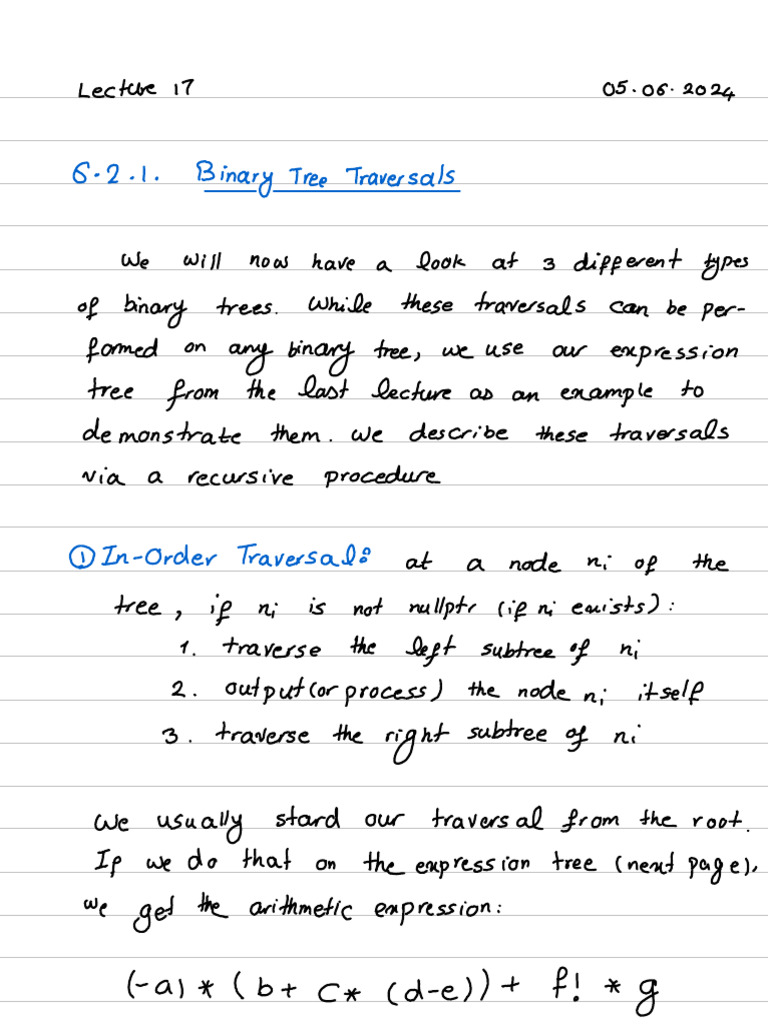 Lecture 17
05.06.2024
6.2.1. Binary Tree Traversals
We will now have a look at 3 different types
of binary trees. While these traversals can be per-
formed on any binary tree, we use our expression
tree from the last lecture as an example to
demonstrate them. We describe these traversals
via a recursive procedure
① In-Order Traversal: at a node ni of the
tree, if ni is not nullptr (if ni exists):
1. traverse the left subtree of ni
2. output (or process) the node ni itself
3. traverse the right subtree of ni
We usually stard our traversal from the root.
If we do that on the expression tree (next page),
we get the arithmetic expression:
(-a) * (b+ c* (d-e)) + f! * g